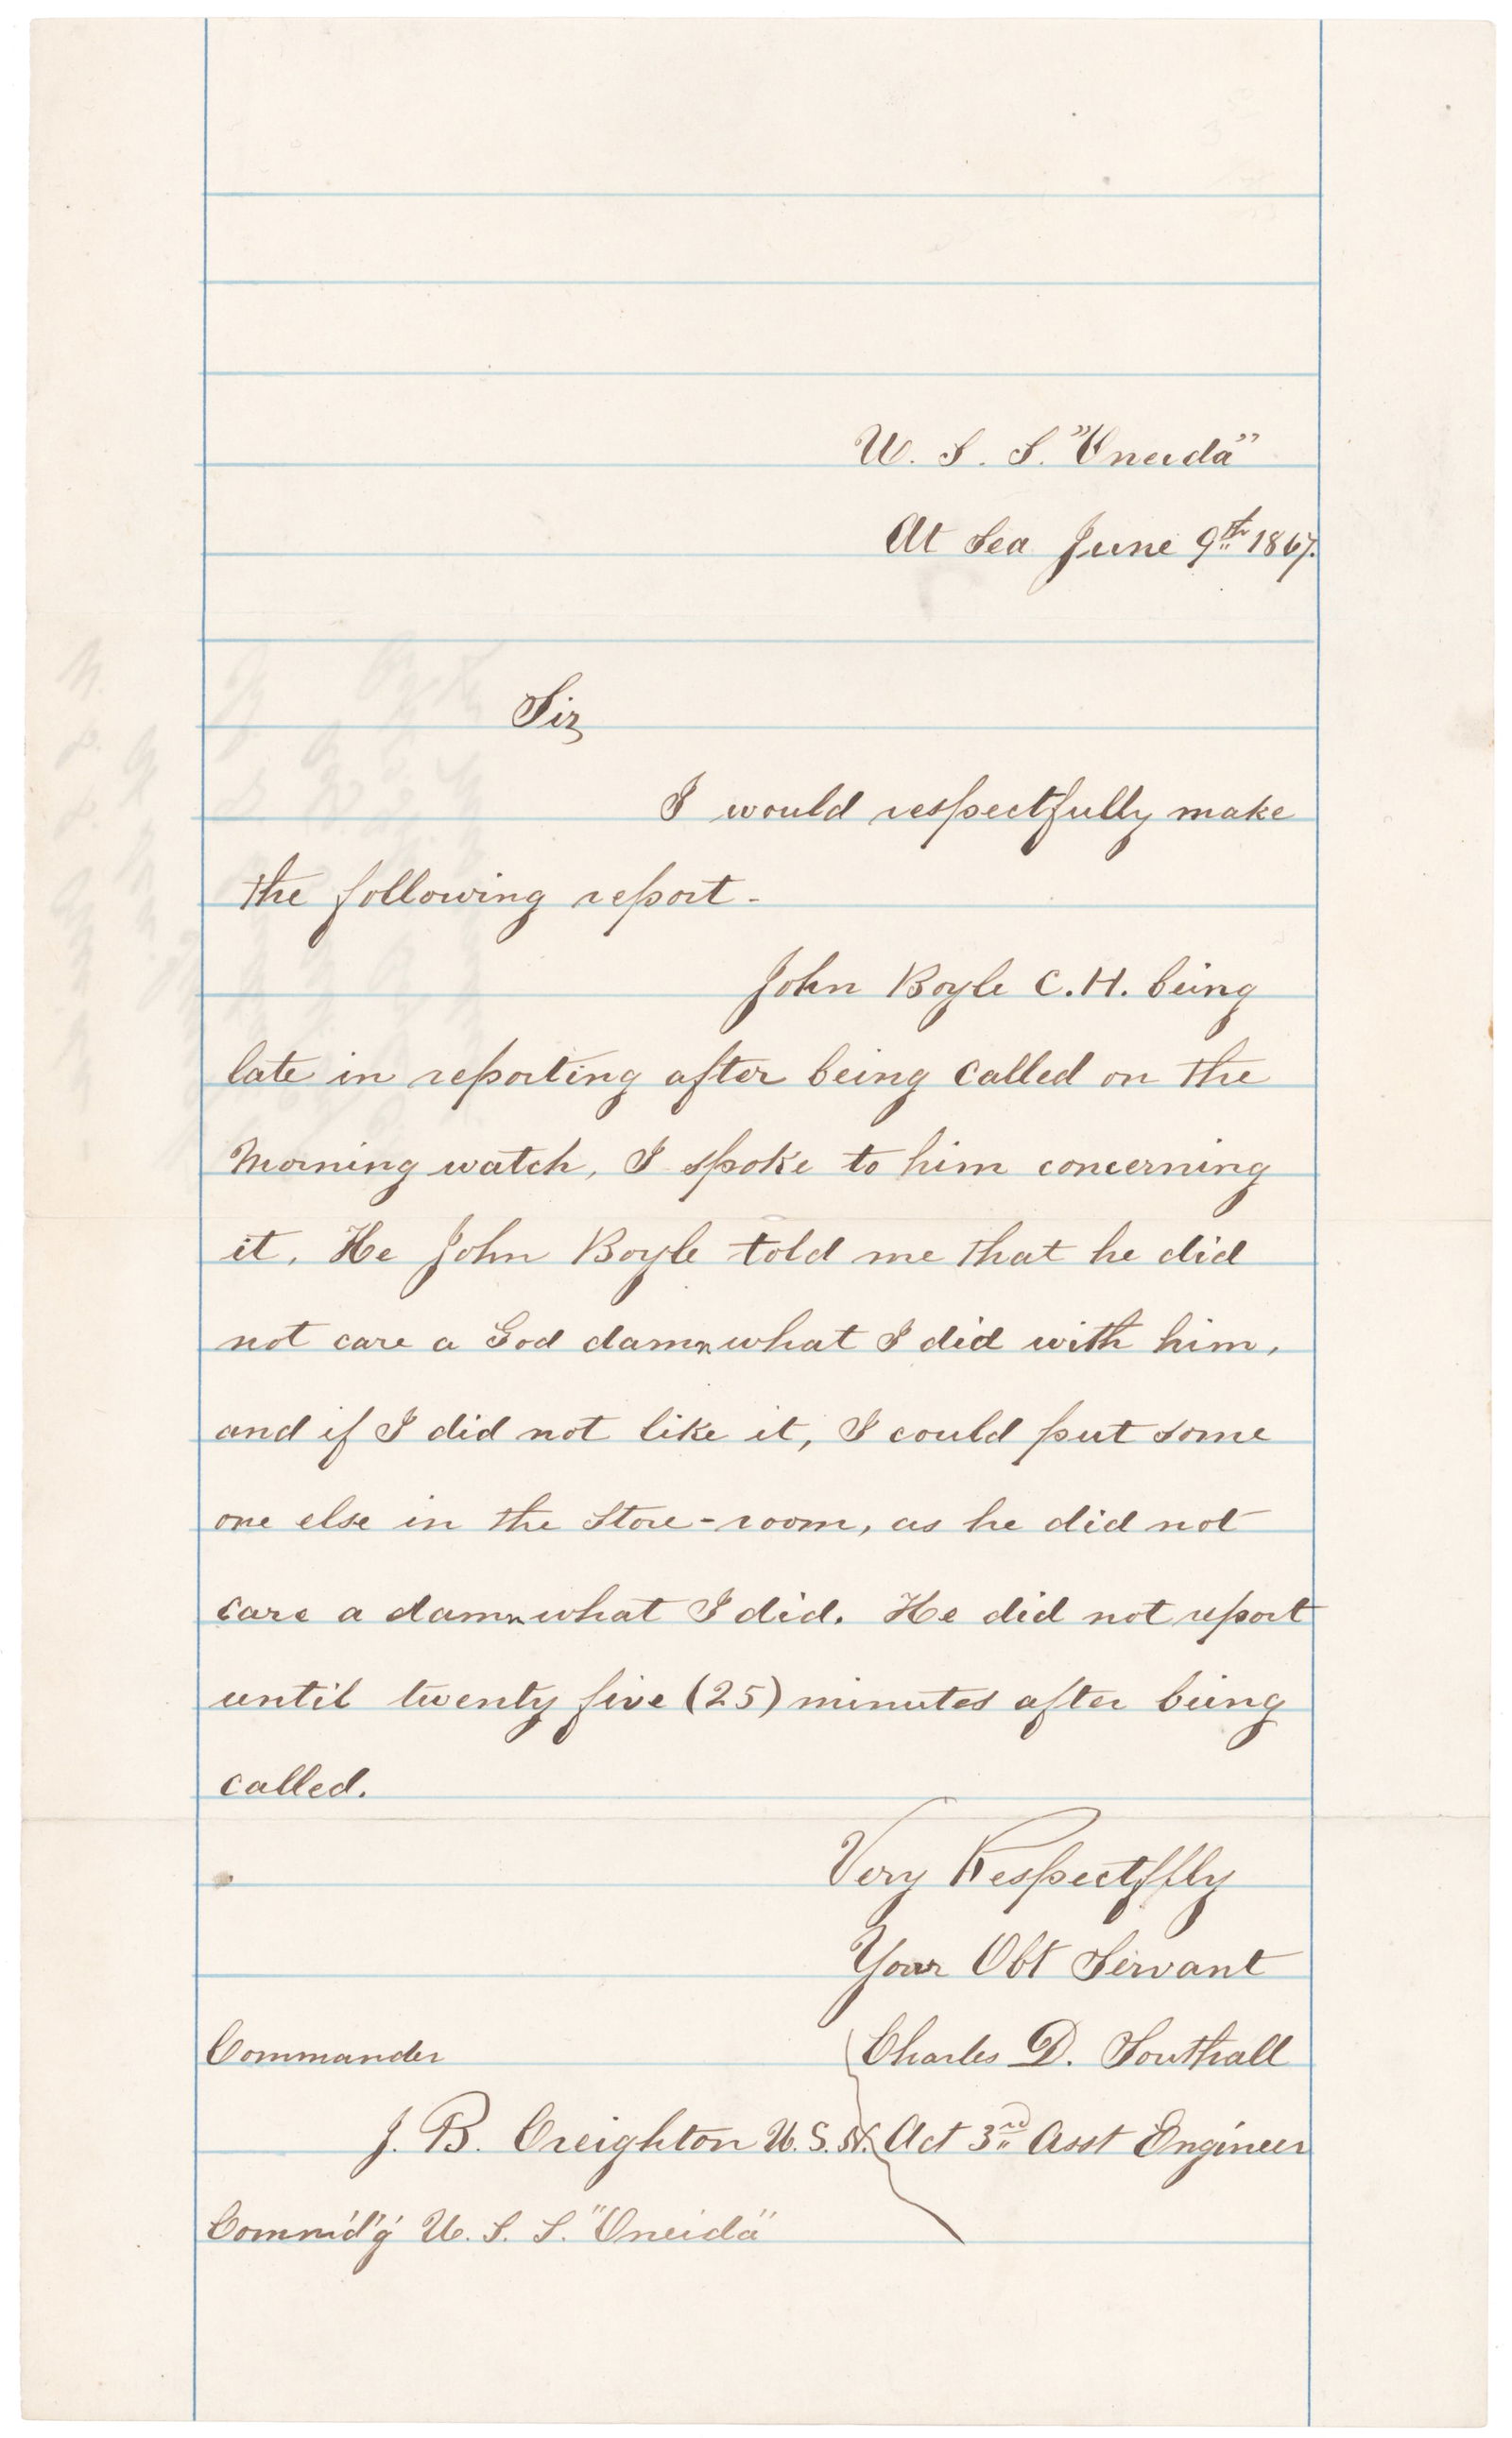 U. S. S. "Oneida"
At Sea June 9th 1867.
Sir
I would respectfully make
the following report -
John Boyle C.H. being
late in reporting after being called on the
Morning watch, I spoke to him concerning
it. He John Boyle told me that he did
not care a God damn what I did with him,
and if I did not like it, I could put some
one else in the Store-room, as he did not
care a damn what I did. He did not report
until twenty five (25) minutes after being
called.
Very Respectflly
Your Obt Servant
Commander Charles D. Southall
J. B. Creighton U.S.N. Act 3rd Asst Engineer
Comm'd'g U. S. S. "Oneida"